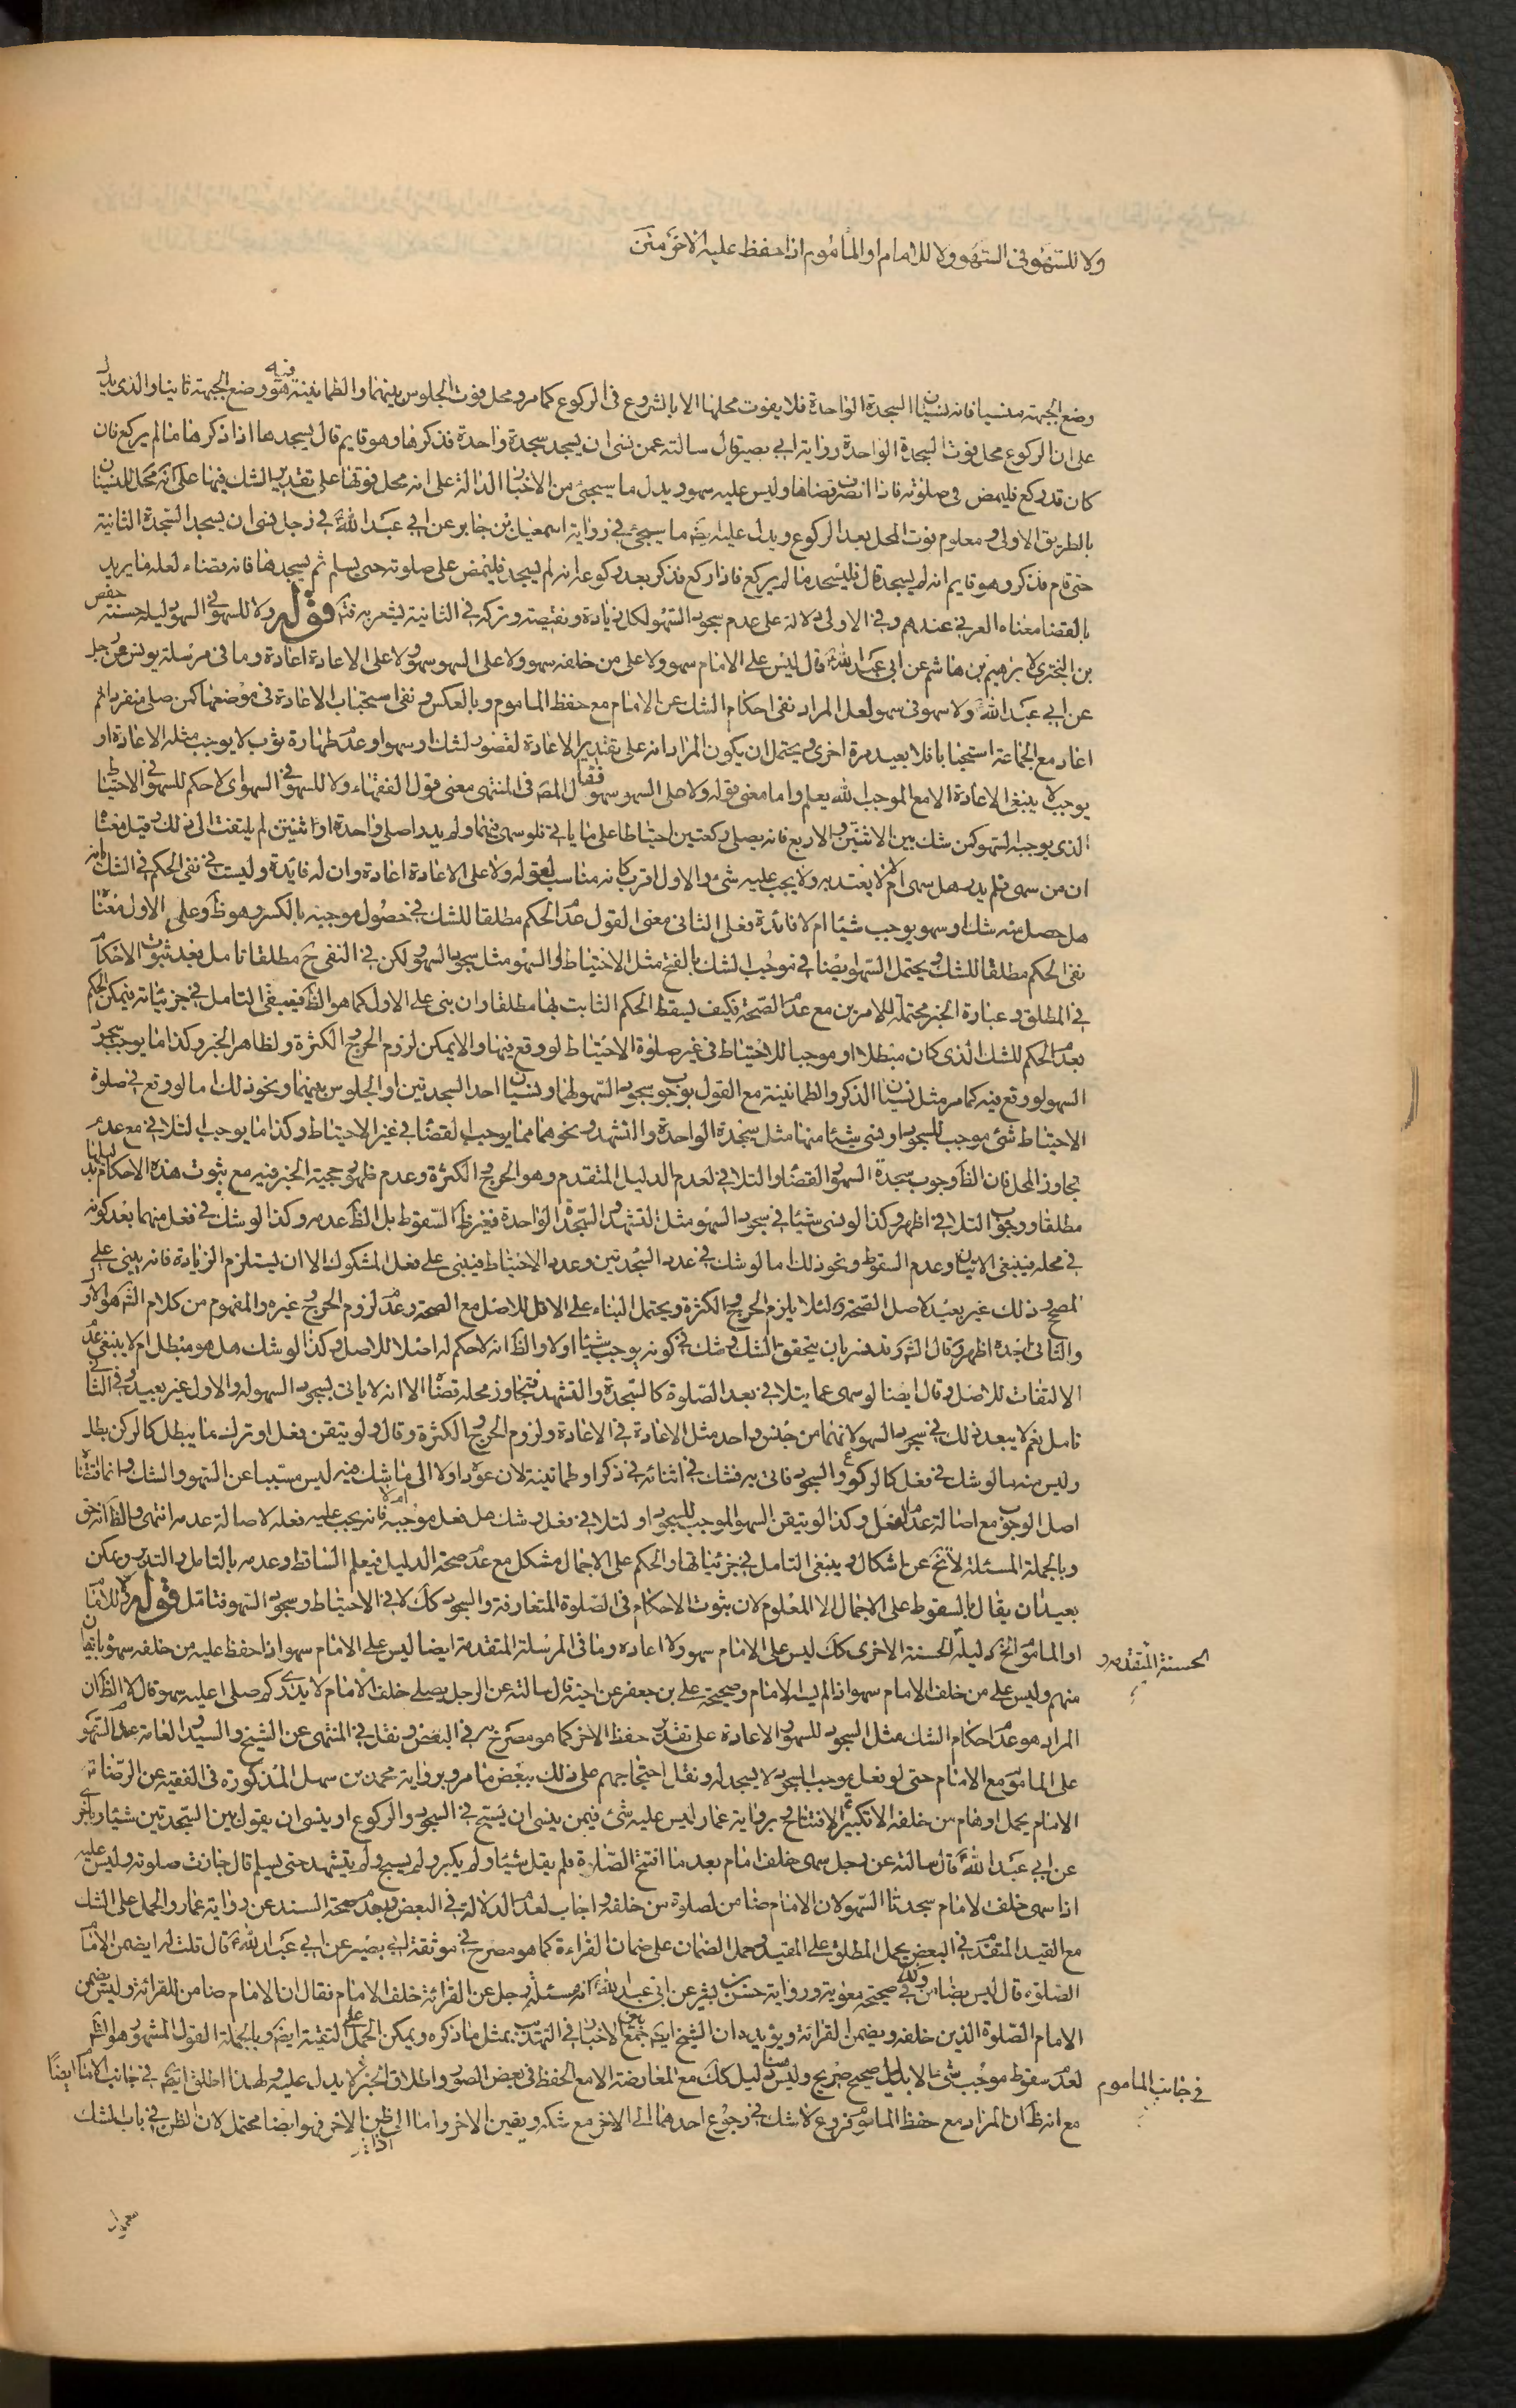 ولا للسهو فى السهو ولا للامام او المأموم اذا حفظ عليه الاخر متن
وضع الجبهة منسيا فانه نسيان السجدة الواحدة فلا يفوت محلها الا بالشروع فى الركوع كما مر ومحل فوت الجلوس بينهما والطمانينة فيه هو وضع الجبهة ثانيا والذى يدل
على ان الركوع محل فوت السجدة الواحدة رواية ابى بصير قال سالته عمن نسى ان يسجد سجدة واحدة فذكرها وهو قايم قال يسجدها اذا ذكرها ما لم يركع فان
كان قد ركع فليمض فى صلوته فاذا انصرف قضاها وليس عليه سهو ويدل ما سيجئ من الاخبار الدالة على انه محل فوتها على تقدير الشك فيها على انه محل للنسيان
بالطريق الاولى ومعلوم فوت المحل بعد الركوع ويدل عليه ايضا ما سيجئ فى رواية اسمعيل بن جابر عن ابى عبد الله فى رجل نسى ان يسجد السجدة الثانية
حتى قام فذكر وهو قايم انه لم يسجد قال فليسجد ما لم يركع فاذا ركع فذكر بعد ركوعه انه لم يسجد فليمض على صلوته حتى يسلم ثم يسجدها فانه قضاء لعله ما يريد
بالقضا معناه العرفى عندهم وفى الاولى دلالة على عدم سجود السهو لكل زيادة ونقيصة وتركه فى الثانية يشعر به فت قوله ولا للسهو فى السهو دليله حسنة حفص
بن البخترى لابرهيم بن هاشم عن ابى عبد الله قال ليس على الامام سهو ولا على من خلفه سهو ولا على السهو سهو ولا على الاعادة اعادة وما فى مرسلة يونس عن رجل
عن ابى عبد الله ولا سهو فى سهو لعل المراد نفى احكام الشك عن الامام مع حفظ الماموم وبالعكس ونفى استحباب الاعادة فى موضعها كمن صلى منفردا ثم
اعاد مع الجماعة استحبابا فلا يعيد مرة اخرى ويحتمل ان يكون المراد انه على تقدير الاعادة لقصور لشك او سهو او عدم طهارة ثوب لا يوجب مثله الاعادة او
يوجب لا ينبغى الاعادة الا مع الموجب الله يعلم واما معنى قوله ولا على السهو سهو فقال المص فى المنتهى معنى قول الفقهاء ولا للسهو فى السهو اى لا حكم للسهو فى الاحتياط
الذى يوجبه السهو كمن شك بين الاثنتين والاربع فانه يصلى ركعتين احتياطا على ما ياتى فلو سهى فيهما ولم يدر اصلى واحدة او اثنتين لم يلتفت الى ذلك وقيل معناه
ان من سهى فلم يدر هل سهى ام لا لا يعتد به ولا يجب عليه شئ والاول اقرب كانه مناسب لقوله ولا على الاعادة اعادة وان له فايدة وليست فى نفى الحكم فى الشك انه
هل حصل منه شك او سهو يوجب شيئا ام لا فائدة فعلى الثانى معنى القول عدم الحكم مطلقا للشك فى حصول موجبه بالكسر وهو ظ وعلى الاول معناه
نفى الحكم مطلقا للشك ويحتمل السهو ايضا فى موجب الشك بالفتح مثل الاحتياط او السهو مثل سجود السهو لكن فى النفى ح مطلقا تامل بعد ثبوت الاحكام
فى المطلق وعبارة الخبر محتملة للامرين مع عدم الصحة فكيف يسقط الحكم الثابت بها مطلقا وان بنى على الاول كما هو الظ فينبغى التامل فى جزئياته فيمكن الحكم
بعدم الحكم للشك الذى كان مبطلا او موجبا للاحتياط فى غير صلوة الاحتياط لو وقع فيها والا يمكن لزوم الحرج والكثرة ولظاهر الخبر وكذا ما يوجب سجود
السهو لو وقع فيه كما مر مثل نسيان الذكر والطمانينة مع القول بوجوب سجود السهو لهما ونسيان احد السجدتين او الجلوس بينهما ونحو ذلك اما لو وقع فى صلوة
الاحتياط شئ موجب للسجود او نسى شيئا منها مثل سجدة الواحدة والتشهد ونحوهما مما يوجب القضا فى غير الاحتياط وكذا ما يوجب التلافى مع عدم
تجاوز المحل فان الظ وجوب سجدة السهو والقضا والتلافى لعدم الدليل المتقدم وهو الحرج والكثرة وعدم ظهور حجية الخبر فيه مع ثبوت هذه الاحكام بدليلها
مطلقا ووجوب التلافى اظهر وكذا لو نسى شيئا فى سجود السهو مثل التشهد والسجدة الواحدة فغير ظ السقوط بل الظ عدمه وكذا لو شك فى فعل منهما بعد كونه
فى محله فينبغى الاتيان وعدم السقوط ونحو ذلك اما لو شك فى عدد السجدتين وعدد الاحتياط فيبنى على فعل المشكوك الا ان يستلزم الزيادة فانه يبنى على
المصحح وذلك غير بعيد لاصل الصحة ولئلا يلزم الحرج والكثرة ويحتمل البناء على الاقل للاصل مع الصحة وعدم لزوم الحرج غيره والمفهوم من كلام الش هو الاول
والثانى اجده اظهر وقال الش وتد فسر بان يتحقق الشك وشك فى كونه يوجب شيئا او لا والظ انه لا حكم له اصلا للاصل وكذا لو شك هل هو مبطل ام لا ينبغى عدم
الالتفات للاصل وقال ايضا لو سهى عما يتلافى بعد الصلوة كالسجدة والتشهد فتجاوز محله قضاه الا انه لا ياتى بسجود السهو له والاول غير بعيد وفى الثانى
تامل نعم لا يبعد ذلك فى سجود السهو لانهما من جنس واحد مثل الاعادة فى الاعادة ولزوم الحرج والكثرة وقال ولو تيقن فعل او ترك ما يبطل كالركن بطل
وليس منه ما لو شك فى فعل كالركوع والسجود فاتى به فشك فى اثنائه فى ذكر او طمانينة لان عوده اولا الى ما شك فيه ليس مسببا عن السهو والشك وانما اقتضاه
اصل الوجوب مع اصالة عدم الفعل وكذا لو تيقن السهو الموجب للسجود او لتلافى فعل وشك هل فعل موجبه ام لا فانه يجب عليه فعله لاصالة عدمه انتهى والظ انه حق
وبالجملة المسئلة لا تخ عن اشكال وينبغى التامل فى جزئياتها والحكم على الاجمال مشكل مع عدم صحة الدليل فيعلم الساقط وعدمه بالتامل والتدبر ويمكن
بعيدا ان يقال بالسقوط على الاجمال لا المعلوم لان ثبوت الاحكام فى الصلوة المتعارفة والسجود كك لا فى الاحتياط وسجود السهو فتامل قوله ولا للامام
او الماموم الخ دليله الحسنة الاخرى كك ليس على الامام سهو ولا اعاده وما فى المرسلة المتقدمة ايضا ليس على الامام سهو اذا حفظ عليه من خلفه سهوه باتفاق
الحسنة المتقدمه و
منهم وليس على من خلف الامام سهو اذا لم يسه الامام وصحيحة على بن جعفر عن اخيه قال سالته عن الرجل يصلى خلف الامام لا يدرى كم صلى اعليه سهو قال لا الظ ان
المراد هو عدم احكام الشك مثل السجود للسهو والاعادة على تقدير حفظ الاخر كما هو مصرح به فى البعض ونقل فى المنتهى عن الشيخ والسيد والعامة عدم السهو
على الماموم مع الامام حتى لو فعل موجب السجود لا يسجد له ونقل احتجاجهم على ذلك ببعض ما مر وبرواية محمد بن سهل المذكورة فى الفقيه عن الرضا قال
الامام يحمل اوهام من خلفه الا تكبيرة الافتتاح وبرواية عمار ليس عليه شئ فيمن ينسى ان يسبح فى السجود والركوع او ينسى ان يقول بين السجدتين شيئا وباخرى
عن ابى عبد الله قال سالته عن رجل سهى خلف امام بعد ما افتتح الصلوة فلم يقل شيئا ولم يكبر ولم يسبح ولم يتشهد حتى يسلم قال جازت صلوته وليس عليه
اذا سهى خلف الامام سجدتا السهو لان الامام ضامن لصلوة من خلفه واجاب لعدم الدلالة فى البعض وبعدم صحة السند عن رواية عمار والحمل على الشك
مع القيد المتقدم فى البعض بحمل المطلق على المقيد وحمل الضمان على ضمان القراءة كما هو مصرح فى موثقة ابى بصير عن ابى عبد الله قال قلت له ايضمن الامام
الصلوة قال ليس بضامن وكك فى صحيحة معوية ورواية حسين بن بشير عن ابى عبد الله انه سئله رجل عن القرائة خلف الامام فقال ان الامام ضامن للقرائة وليس يضمن
الامام الصلوة الذين خلفه ويضمن القرائة ويؤيده ان الشيخ ايضا جمع بين الاخبار فى التهذيب بمثل ما ذكره ويمكن الحمل على التقية ايضا وبالجملة القول المشهور هو الش
لعدم سقوط موجب شئ الا بدليل صحيح صريح وليس هنا دليل كك مع المعارضة الا مع الحفظ فى بعض الصور واطلاق الخبر لا يدل عليه ولهذا اطلق ايضا فى جانب الامام ايضا
فى جانب الماموم
مع انه ظ ان المراد مع حفظ الماموم فروع لا شك فى رجوع احدهما الى الاخر مع شكه ويقين الاخر واما الى ظن الاخر فهو ايضا محتمل لان الظن فى باب الشك